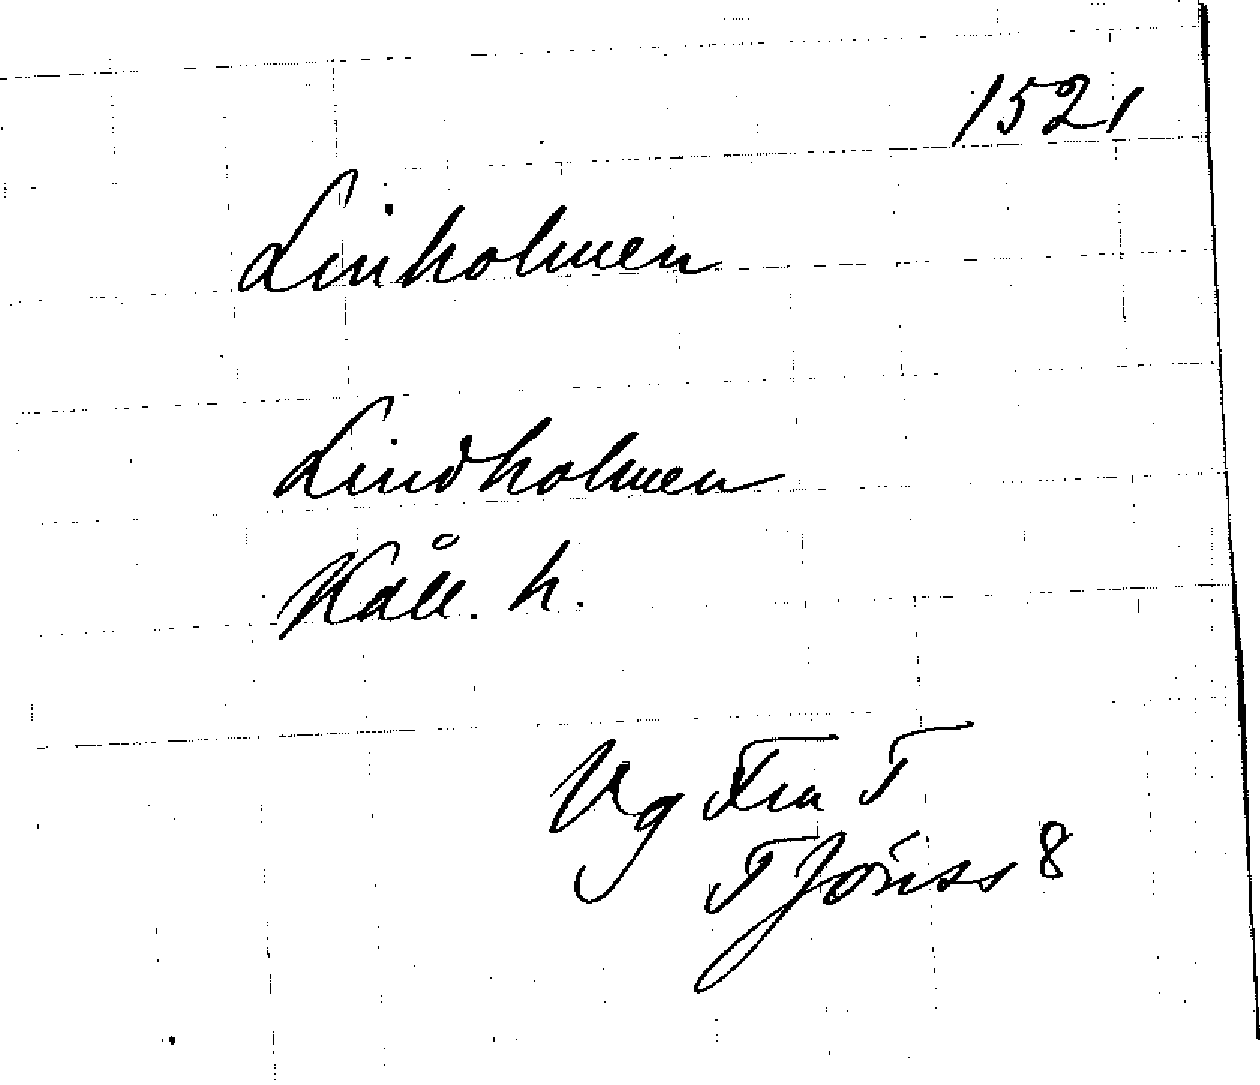 1521
Linholmen
Lindholmen
Kåll. h.
Vg Fra T
T Jönss 8